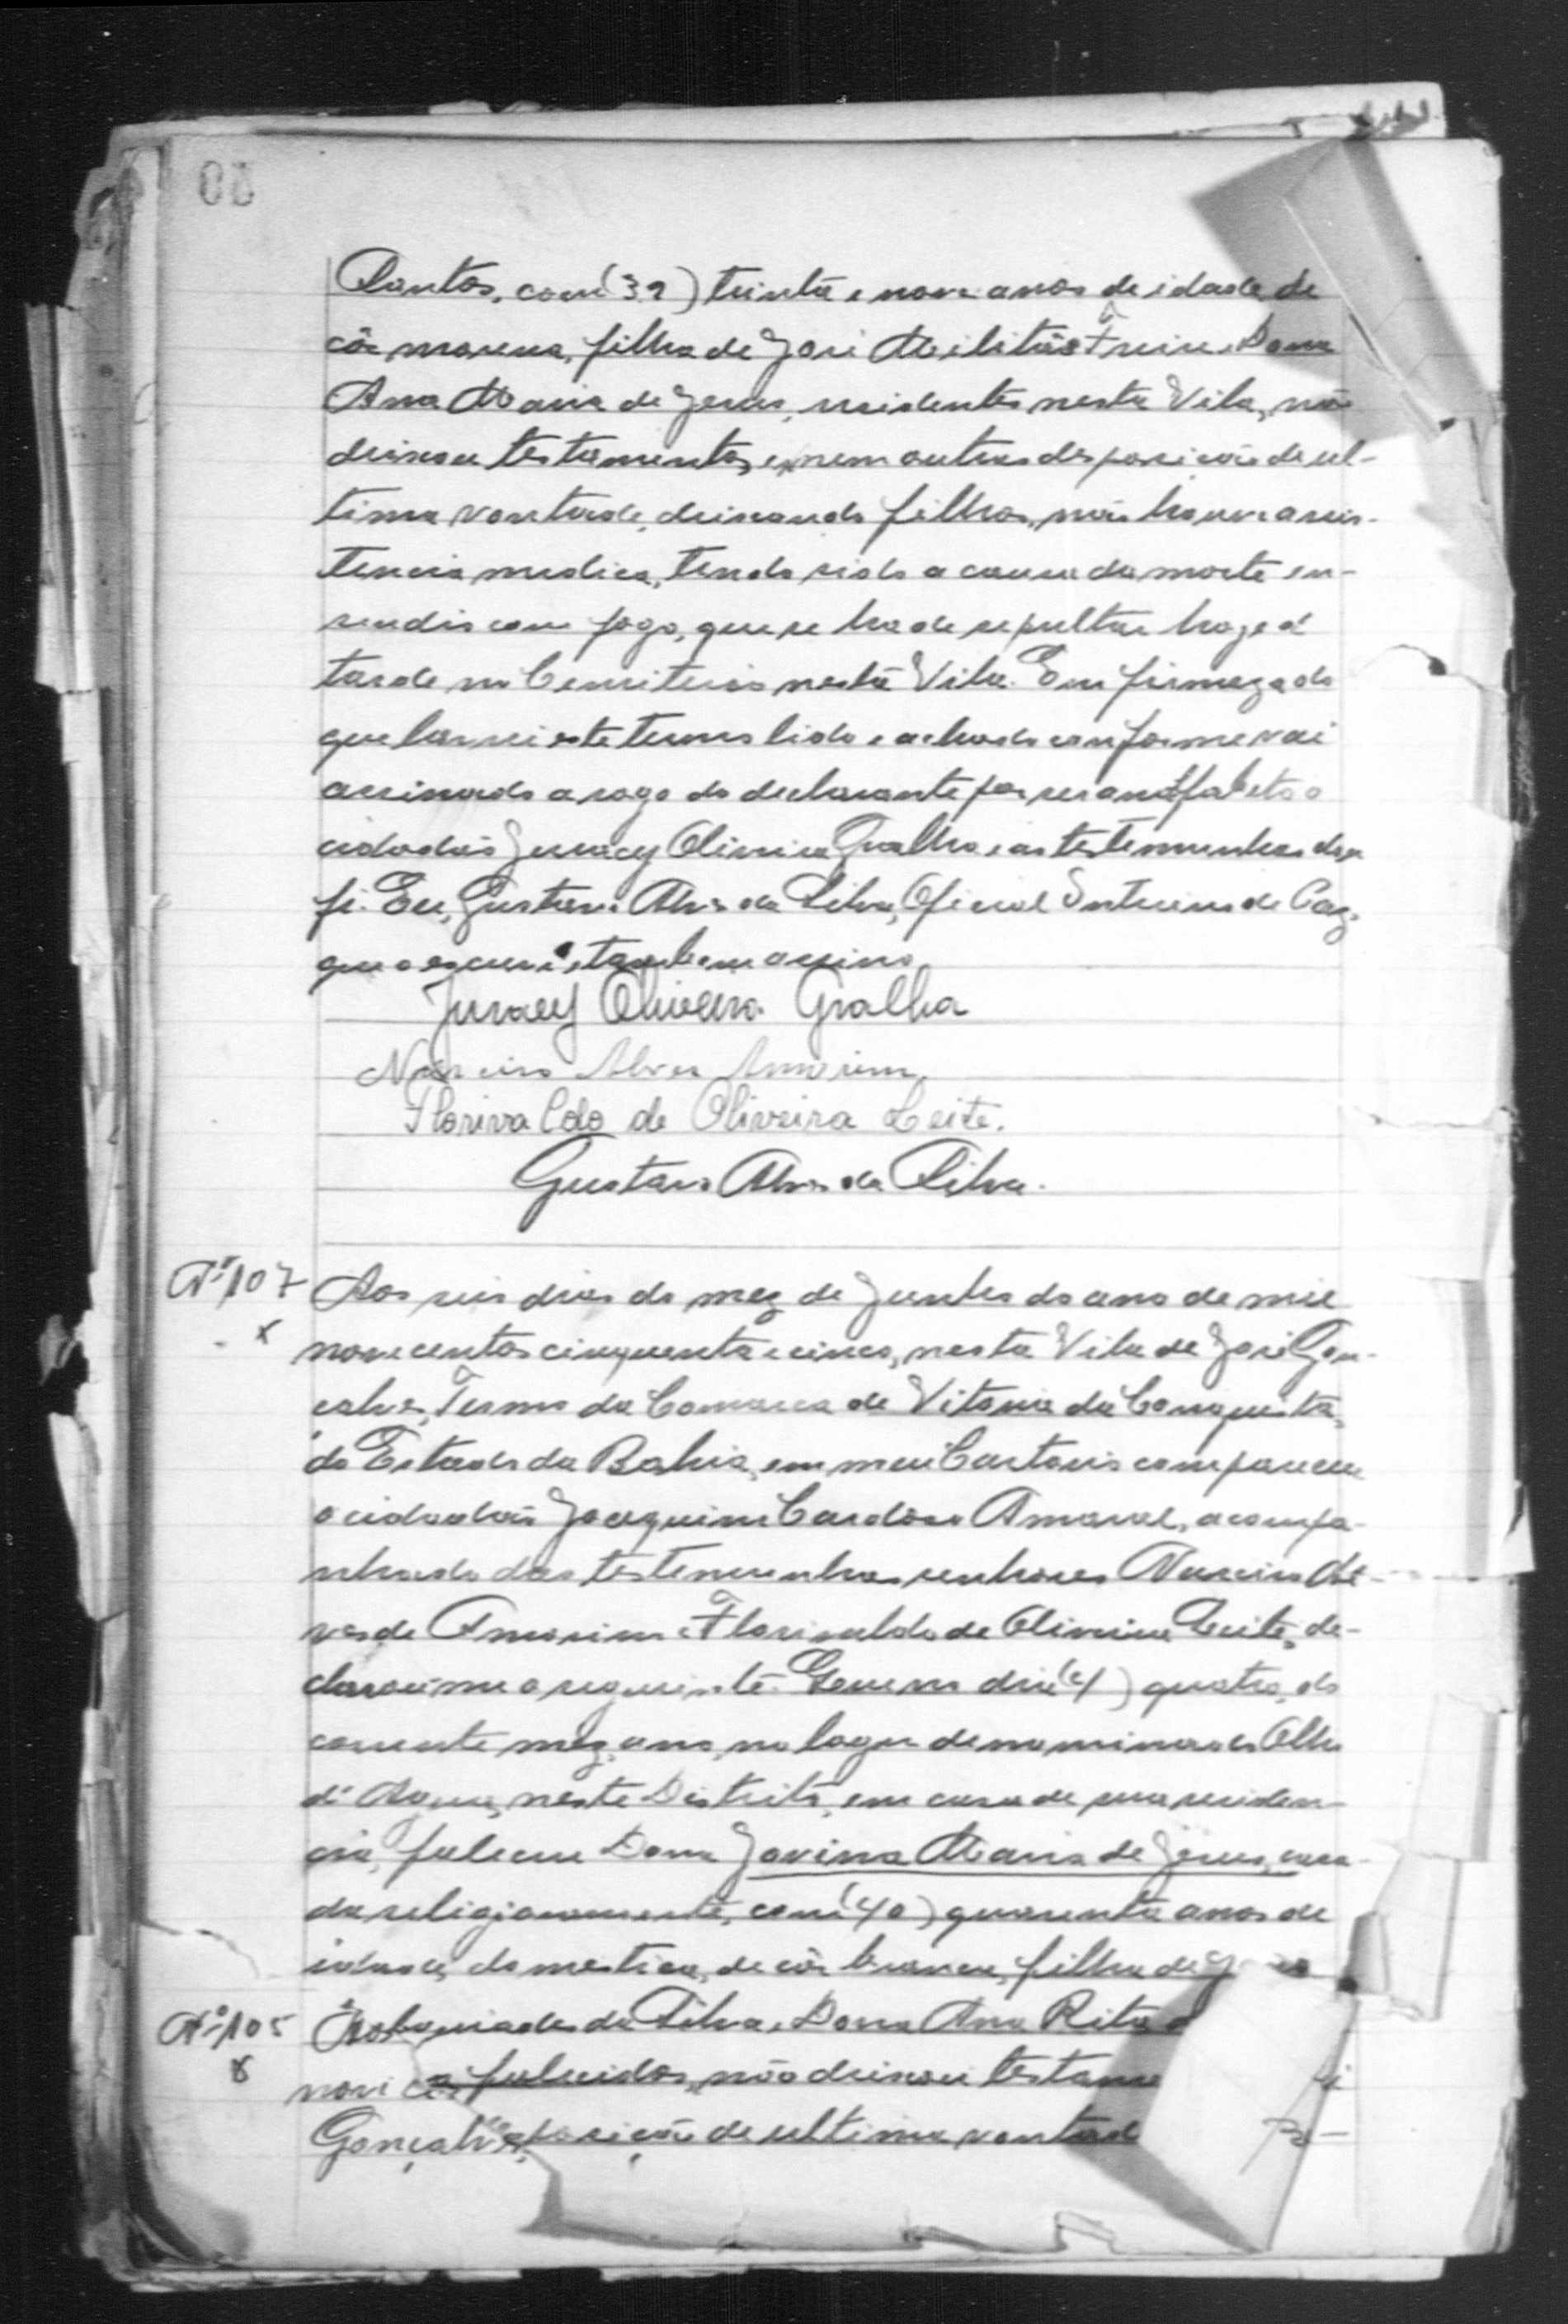 Santos, com (39) trinta e nove anos de idade de
côr morena, filha de José Militão Freire e Dona
Ana Maria de Jesus, residentes nesta Vila, não
deixou testamentos, e nem outras desposição de ul-
tima vontade, deixando filhos, não houve assis-
tencia medica, tendo sido a causa da morte en-
cendio com fogo, que se ha de sepultar hoje á
tarde no Cemiterio nesta Vila. Em firmeza do
que lavrei este termo lido e achado conforme vai
assinado a rogo do declarante por ser analfabeto o
cidadão Juracy Oliveira Gralha e as testemunhas dou
fé. Eu, Gustavo Alves da Silva, Oficial Interino de Paz,
que o escrevi e tambem assino.
Juracy Oliveira Gralha
Narciso Alves Amorim
Florivaldo de Oliveira Leite.
Gustavo Alves da Silva.
Nº 107 Aos seis dias do mez de Junho do ano de mil
x novecentos cinquenta e cinco, nesta Vila de José Gon-
çalves, Termo da Comarca de Vitoria da Conquista,
do Estado da Bahia, em meu Cartorio compareceu
o cidadão Joaquim Cardôso Amaral, acompa-
nhado das testemunhas senhores Narciso Al-
ves de Amorim e Florivaldo de Oliveira Leite, de-
clarou-me o seguinte: Que no dia (4) quatro, do
corrente mez, ano, no logar denominado Olho
d'Agua, neste Distrito, em casa de sua residen-
cia, faleceu Dona Jovina Maria de Jesus, casa-
da religiosamente, com (40) quarenta anos de
idade, domestica, de côr branca, filha de
Nº 105 da Silva e Dona Ana Rita
x nove falecidos, não deixou testame
Gonçalves, posição de ultima vontad